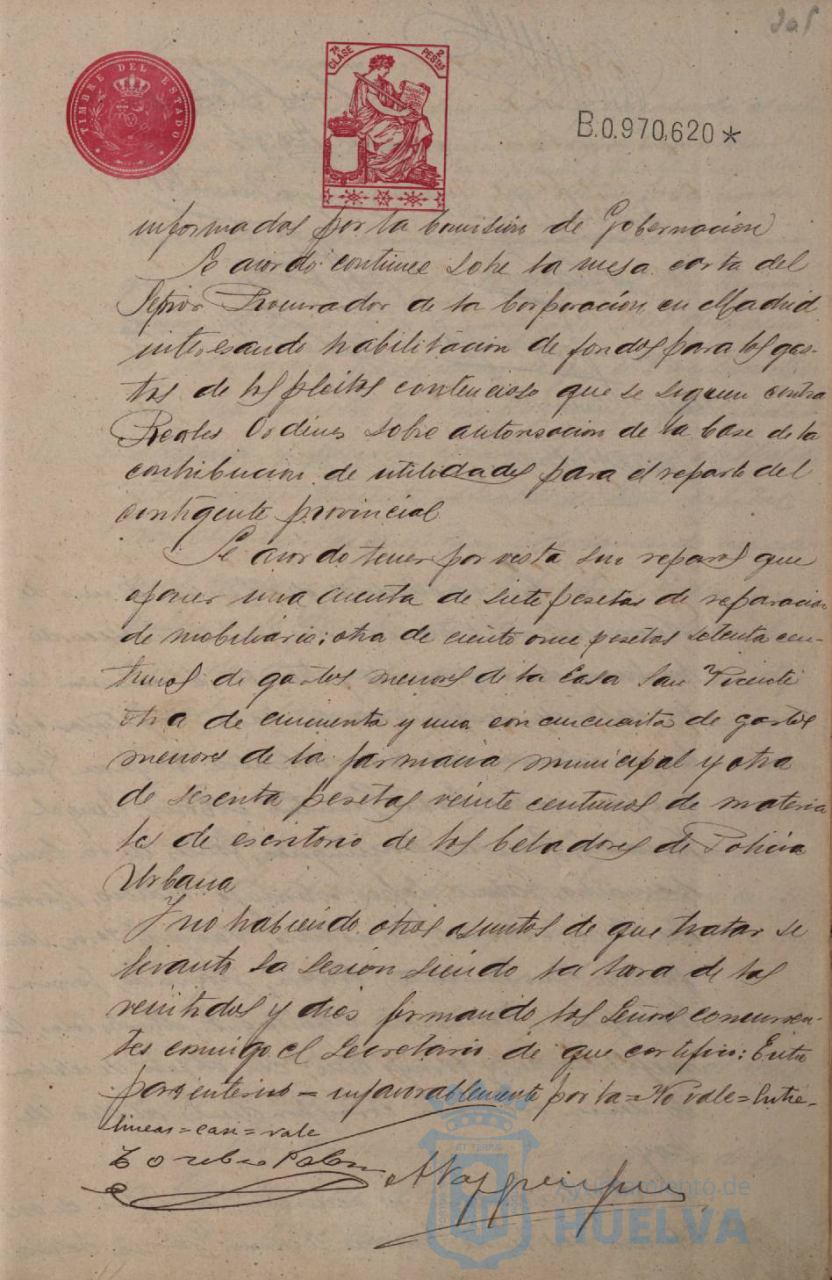 205
TIMBRE DEL ESTADO
7ª CLASE 2 PESTAS
B.0.970.620*
informados por la Comisión de Gobernación
Se acordó continue sobre la mesa carta del
Señor Procurador de la Corporación en Madrid
interesando habilitacion de fondos para los gas-
tos de los pleitos contencioso que se siguen contra
Reales Ordenes sobre autorisacion de la base de la
contribucion de utilidades para el reparto del
contigente provincial
Se acordo tener por vista sin reparos que
oponer una cuenta de siete pesetas de reparacion
de mobiliario; otra de ciento once pesetas setenta cen-
timos de gastos menores de la Casa San Vicente
otra de cincuenta y una con cincuenta de gastos
menores de la farmacia municipal y otra
de sesenta pesetas veinte centimos de materia
les de escritorio de los Celadores de Policia
Urbana
Y no habiendo otros asuntos de que tratar se
levantó la sesión siendo la hora de las
veintidos y dies firmando los Señores concurren-
tes conmigo el Secretario de que certifico: Entre
parentesis = infavorablemente por la = No vale = Entre-
lineas = casi = vale
Ayuntamiento de
HUELVA